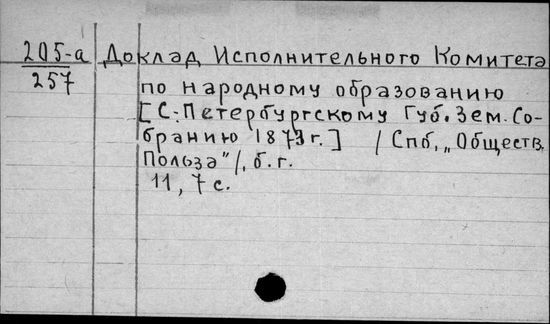 205-а Доклад Исполнительного Комитета
257
по народному образованию
[С.-Петербургскому Губ. Зем. Со-
бранию 1873 г.] / Спб, „Обществ.
Польза"/, б. г.
11, 7 с.